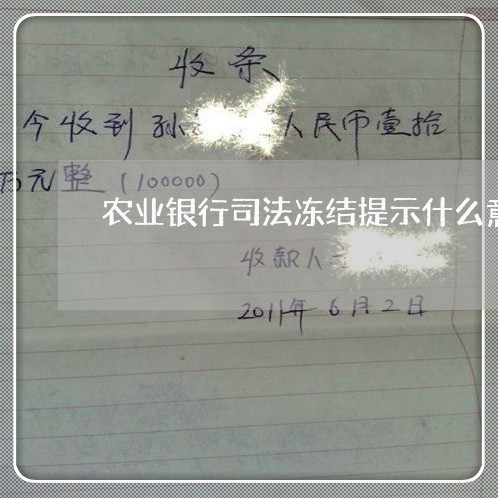 收条
今收到孙 人民币壹拾
万元整（100000）
农业银行司法冻结提示什么意
收款人
2011年6月2日